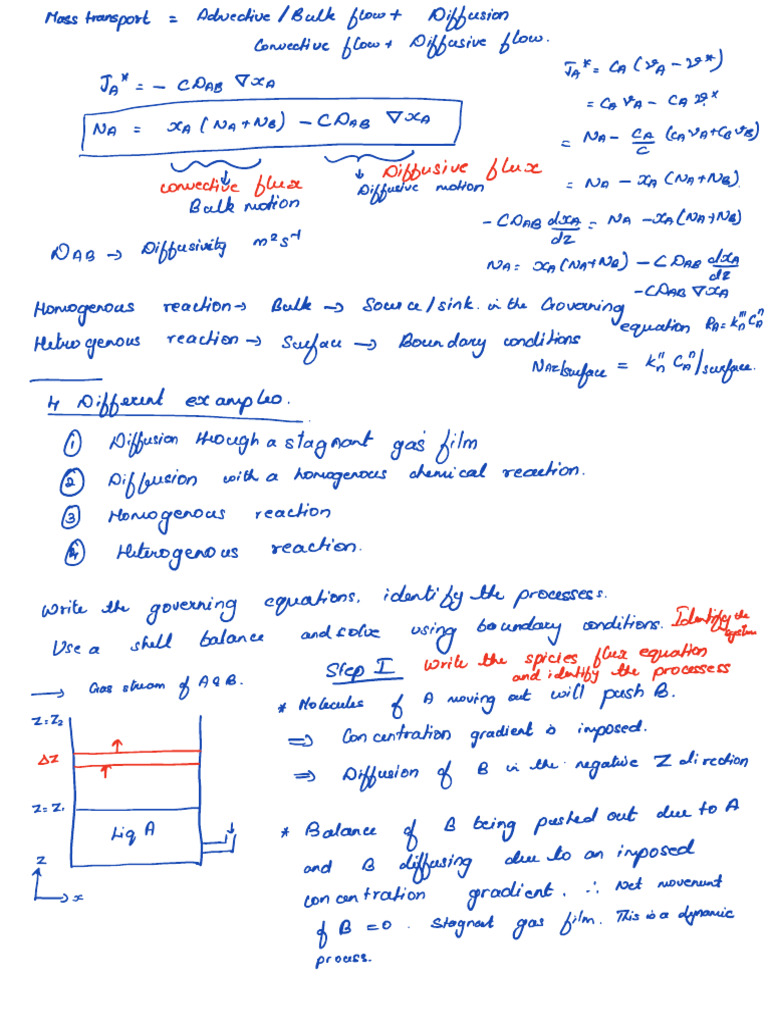 Mass transport = Advective / Bulk flow + Diffusion
Convective flow + Diffusive flow.
J_A* = - C D_AB ∇x_A
N_A = x_A (N_A + N_B) - C D_AB ∇x_A
convective flux
Bulk motion
Diffusive flux
Diffusive motion
D_AB → Diffusivity m² s⁻¹
J_A* = C_A (v_A - v*)
= C_A v_A - C_A v*
= N_A - C_A/C (C_A v_A + C_B v_B)
= N_A - x_A (N_A + N_B)
- C D_AB dx_A/dz = N_A - x_A (N_A + N_B)
N_A = x_A (N_A + N_B) - C D_AB dx_A/dz
- C D_AB ∇x_A
Homogenous reaction → Bulk → Source / sink in the Governing
equation R_A = k_n''' C_A^n
Hetrogenous reaction → Surface → Boundary conditions
N_Az|surface = k_n'' C_A^n|surface.
4 Different examples.
① Diffusion through a stagnant gas film
② Diffusion with a homogenous chemical reaction.
③ Homogenous reaction
④ Heterogenous reaction.
Write the governing equations, identify the processes.
Use a shell balance and solve using boundary conditions. Identify the
system
Step I Write the spicies flux equation
and identify the processess
→ Gas stream of A & B.
z = z₂
Δz
z = z₁
Liq A
z
x
* Molecules of A moving out will push B.
⇒ Concentration gradient is imposed.
⇒ Diffusion of B in the negative z direction
* Balance of B being pushed out due to A
and B diffusing due to an imposed
concentration gradient. ∴ Net movement
of B = 0. Stagnant gas film. This is a dynamic
process.